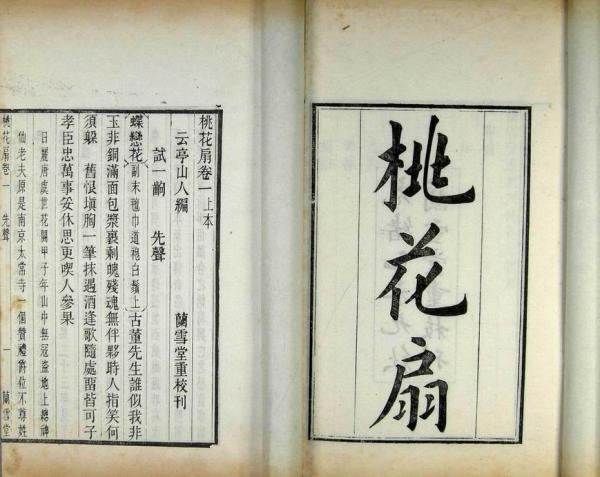 桃花扇
桃花扇卷一上本
云亭山人編　蘭雪堂重校刊
試一齣　先聲
蝶戀花　副末氊巾道袍白鬚上　古董先生誰似我非
玉非銅滿面包漿裹剩魄殘魂無伴夥時人指笑何
須躲　舊恨塡胸一筆抹遇酒逢歌隨處留皆可子
孝臣忠萬事妥休思更喫人參果
日麗唐虞世花開甲子年山中無冦盜地上總神
仙老夫原是南京太常寺一個贊禮爵位不尊姓
桃花扇卷一　先聲　一　蘭雪堂